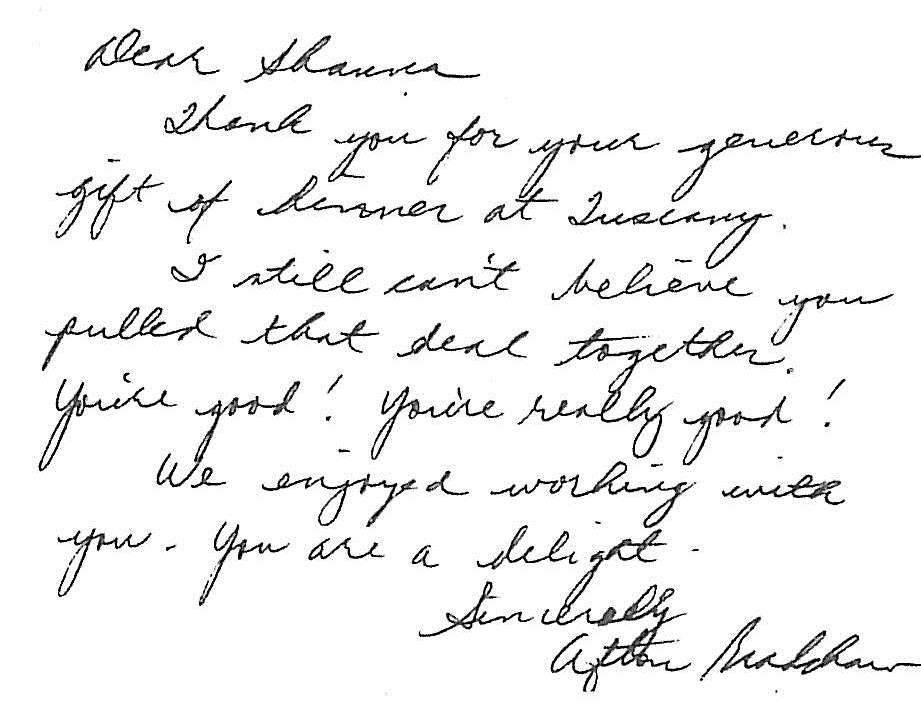 Dear Shauna
Thank you for your generous
gift of dinner at Tuscany.
I still can't believe you
pulled that deal together.
You're good! You're really good!
We enjoyed working with
you. You are a delight.
Sincerely
Afton Bradshaw